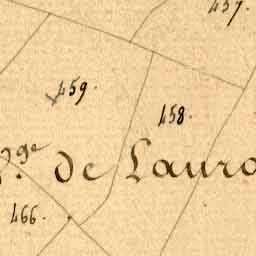 457.
459.
458.
de Laura
466.